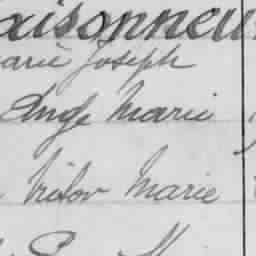 aisonneu
arie Joseph
Ange Marie
Victor Marie